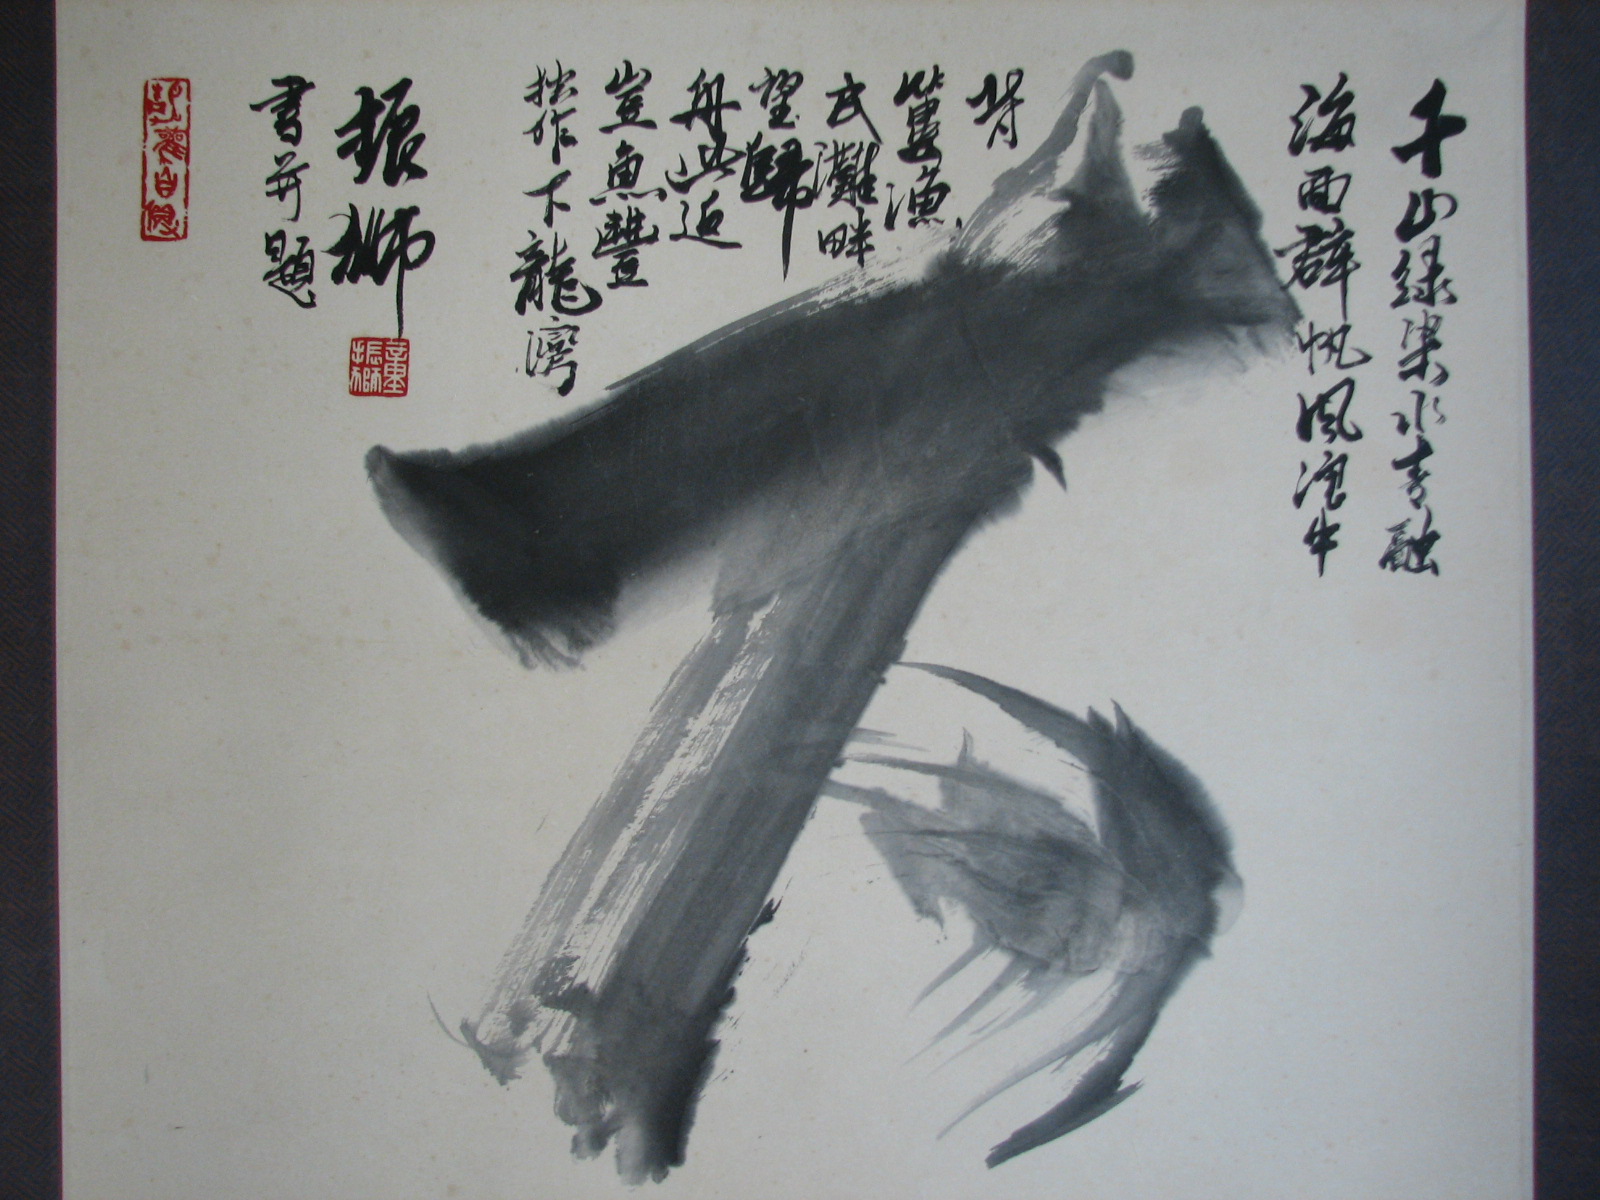 千山綠染水青融
海面群帆風浪中
背
簍漁
民灘畔
望歸
舟迫
豈魚豐
拙作下龍灣
振獅
書并題